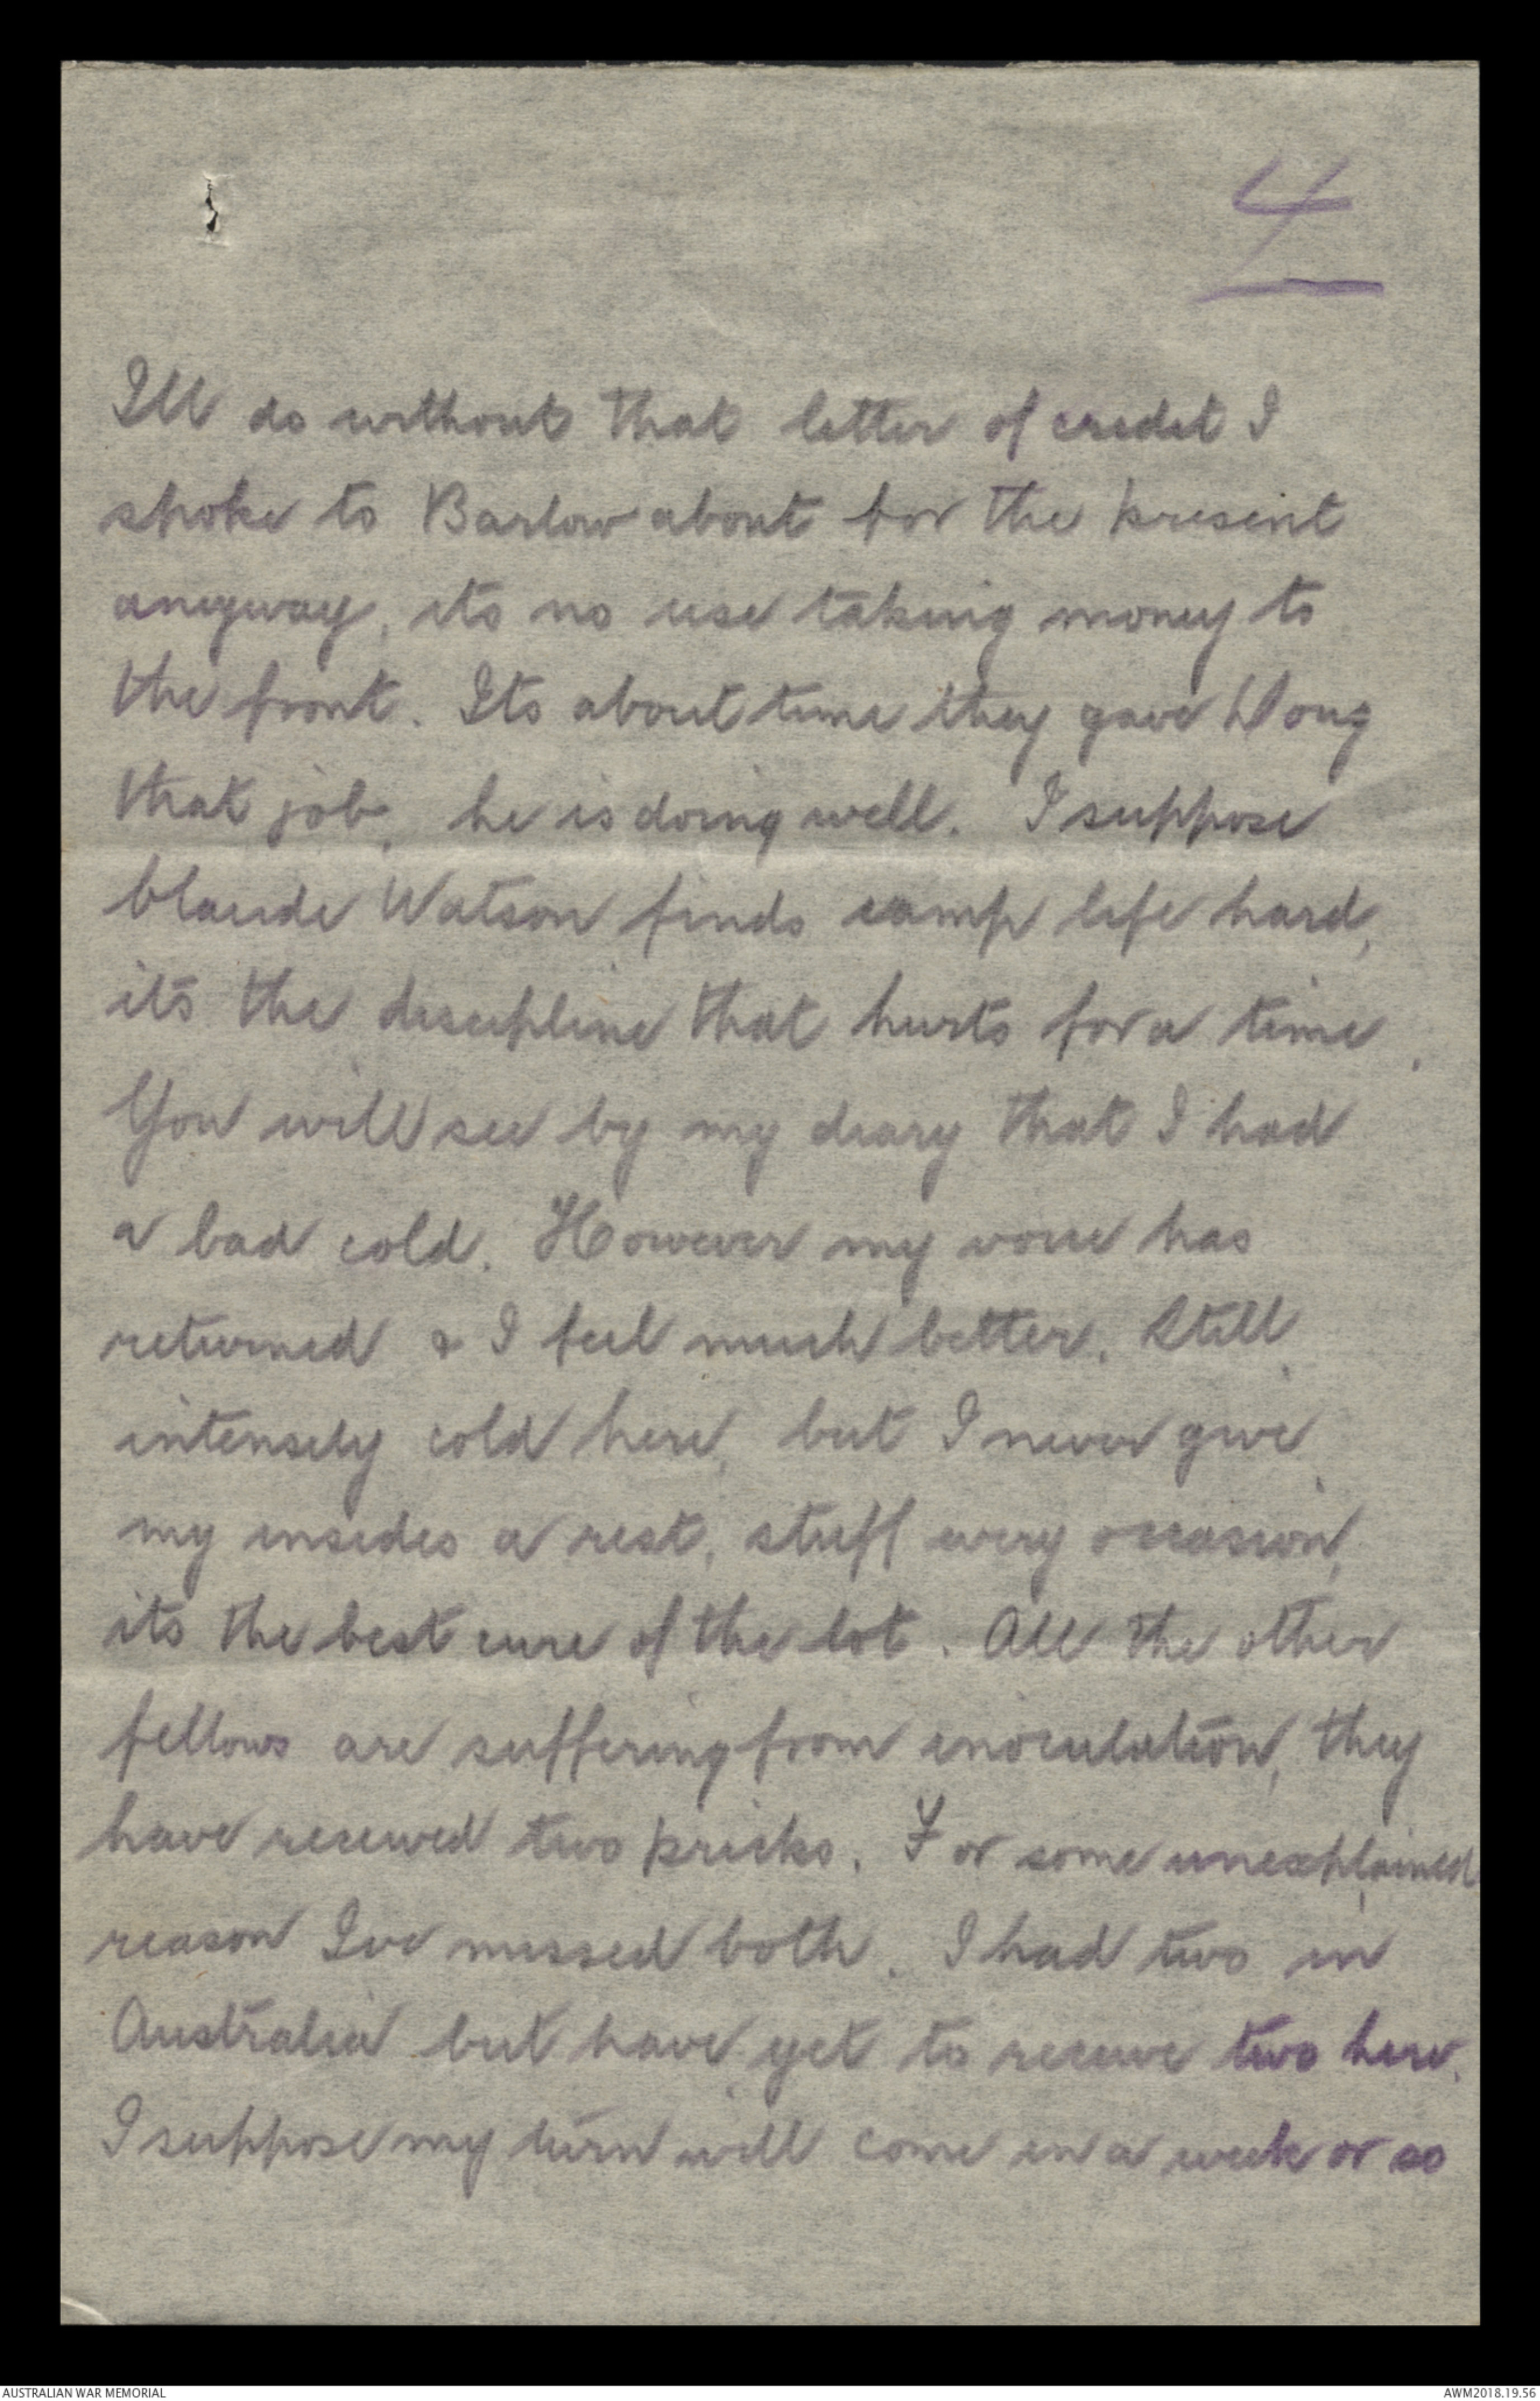 4
Ill do without that letter of credit I
spoke to Barlow about for the present
anyway, its no use taking money to
the front. Its about time they gave Doug
that job, he is doing well. I suppose
Claude Watson finds camp life hard,
its the discipline that hurts for a time.
You will see by my diary that I had
a bad cold. However my voice has
returned & I feel much better. Still
intensely cold here, but I never give
my insides a rest, stuff every occasion,
its the best cure of the lot. All the other
fellows are suffering from inoculation, they
have received two pricks. For some unexplained
reason Ive missed both. I had two in
Australia but have yet to receive two here.
I suppose my turn will come in a week or so
AUSTRALIAN WAR MEMORIAL AWM2018.19.56